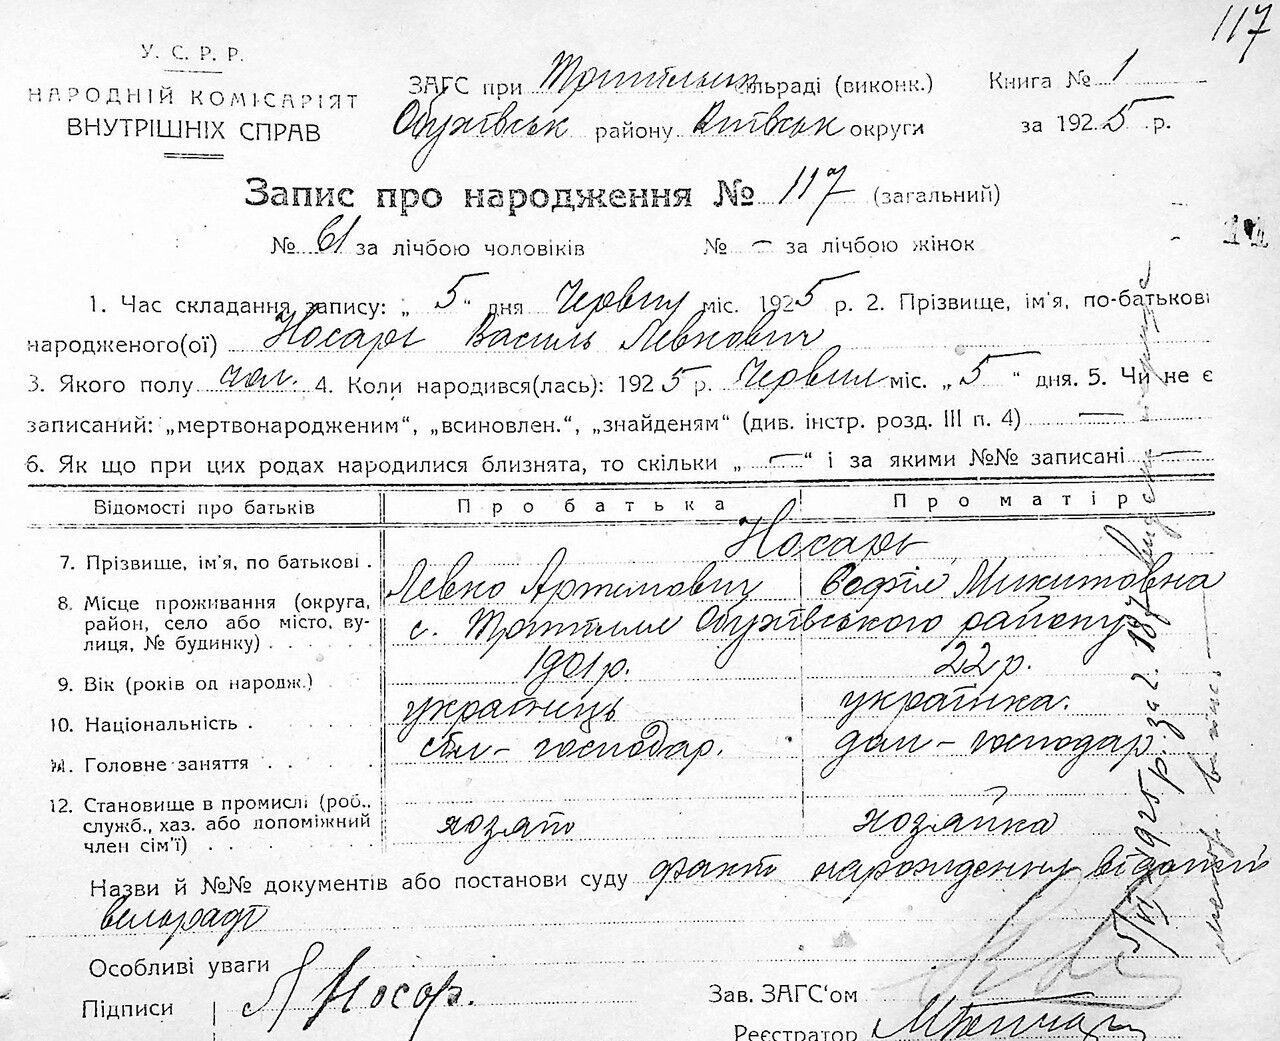 117
У. С. Р. Р.
НАРОДНІЙ КОМІСАРІЯТ
ВНУТРІШНІХ СПРАВ
ЗАГС при Трипільськ сільраді (виконк.)
Обухівськ району Київськ округи
Книга № 1
за 1925 р.
Запис про народження № 117 (загальний)
№ 61 за лічбою чоловіків № — за лічбою жінок
1. Час складання запису: „ 5 " дня Червня міс. 1925 р. 2. Прізвище, ім'я, по-батькові
народженого(ої) Носарь Василь Левкович
3. Якого полу чол. 4. Коли народився(лась): 1925 р. Червня міс. „ 5 " дня. 5. Чи не є
записаний: „мертвонародженим", „всиновлен.", „знайденям" (див. інстр. розд. III п. 4) —
6. Як що при цих родах народилися близнята, то скільки „ — " і за якими №№ записані —
Відомості про батьків Про батька Про матір
Носарь
7. Прізвище, ім'я, по батькові . Левко Артемович Софія Микитовна
8. Місце проживання (округа, район, село або місто, вулиця, № будинку) с. Трипілля Обухівського району
9. Вік (років од народж.) 1901 р. 22 р.
10. Національність . українець українка.
11. Головне заняття сіл-господар. дом-господар
12. Становище в промислі (роб., служб., хаз. або допоміжний член сім'ї) хозяін хозяйка
Назви й №№ документів або постанови суду факт нарождення відомий
сільраді
Особливі уваги
Підписи Л Носар.
Зав. ЗАГС'ом
Реєстратор
5/VI 1925 р. за № 187 видано